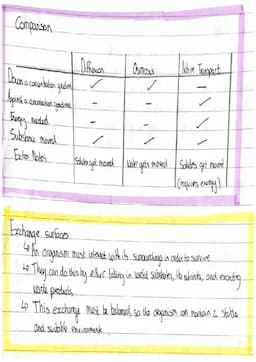 Comparison
Diffusion Osmosis Active Transport
Down a concentration gradient ✓ ✓ -
Against a concentration gradient - - ✓
Energy needed - - ✓
Substance moved ✓ ✓ ✓
Extra Notes Solutes get moved Water gets moved Solutes get moved
(requires energy)
Exchange surfaces
↳ An organism must interact with its surroundings in order to survive
↳ They can do this by either taking in useful substances, like nutrients, and excreting
waste products.
↳ This exchange must be balanced, so the organism can maintain a stable
and suitable environment.